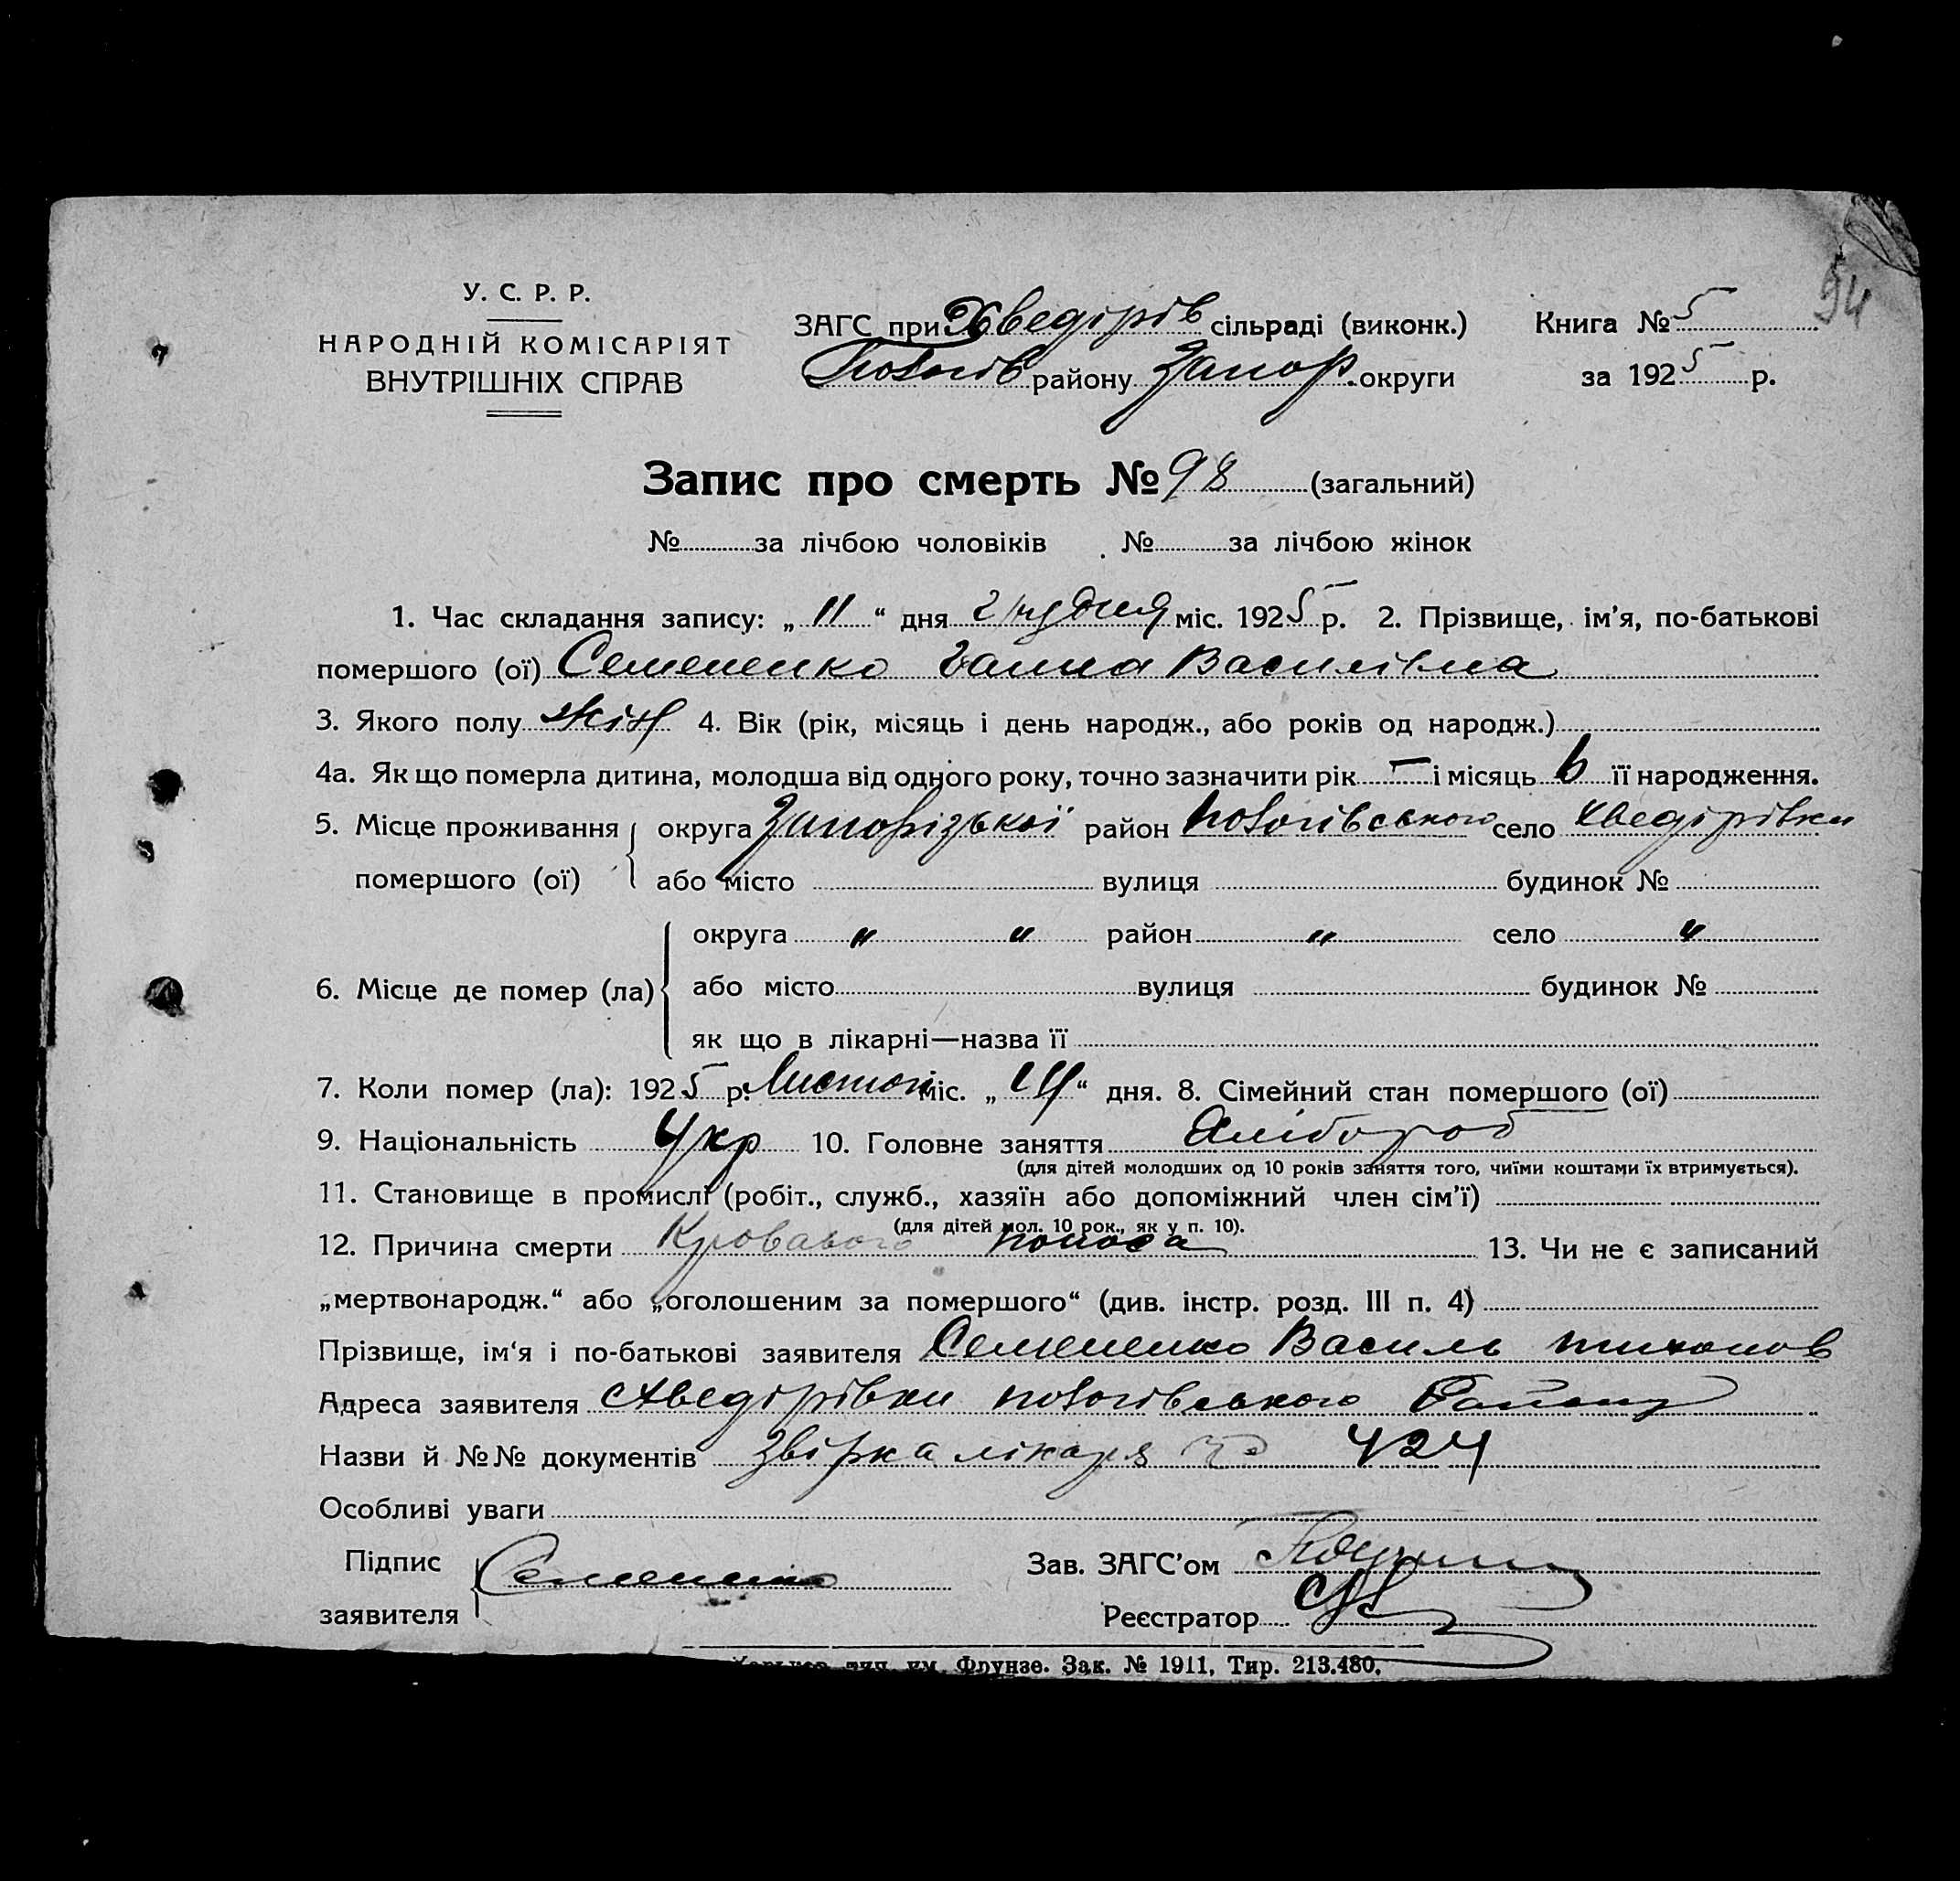 94
У. С. Р. Р.
НАРОДНІЙ КОМІСАРІЯТ
ВНУТРІШНІХ СПРАВ
ЗАГС при Хведірів сільраді (виконк.)
Пологів району Запор. округи
Книга № 5
за 1925 р.
Запис про смерть № 98 (загальний)
№ за лічбою чоловіків № за лічбою жінок
1. Час складання запису: „ 11 “ дня грудня міс. 1925 р. 2. Прізвище, ім'я, по-батькові
помершого (ої) Семененко Ганна Василівна
3. Якого полу жін 4. Вік (рік, місяць і день народж., або років од народж.)
4а. Як що померла дитина, молодша від одного року, точно зазначити рік — і місяць 6 її народження.
5. Місце проживання округа Запорізької район пологівського село Хведірівки
помершого (ої) або місто вулиця будинок №
округа " " район " село "
6. Місце де помер (ла) або місто вулиця будинок №
як що в лікарні—назва її
7. Коли помер (ла): 1925 р. Листоп міс. „ “ дня. 8. Сімейний стан помершого (ої)
9. Національність Укр 10. Головне заняття Хлібороб
(для дітей молодших од 10 років заняття того, чиїми коштами їх втримується).
11. Становище в промислі (робіт., служб., хазяїн або допоміжний член сім'ї)
(для дітей мол. 10 рок., як у п. 10).
12. Причина смерти Кровавого поноса 13. Чи не є записаний
„мертвонародж.“ або „оголошеним за помершого“ (див. інстр. розд. III п. 4)
Прізвище, ім'я і по-батькові заявителя Семененко Василь тихонов
Адреса заявителя Хведірівки пологівського Району
Назви й №№ документів звірка лікаря № 424
Особливі уваги
Підпис
заявителя Семененко
Зав. ЗАГС'ом
Реєстратор
тип. им. Фрунзе. Зак. № 1911, Тир. 213.480.